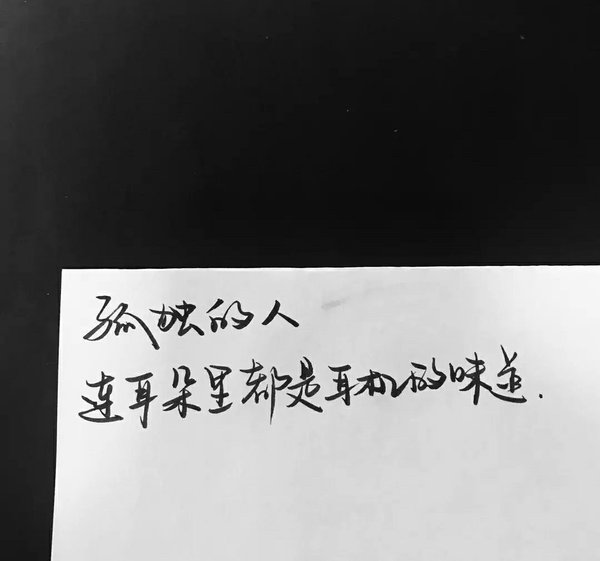 孤独的人
连耳朵里都是耳机的味道.